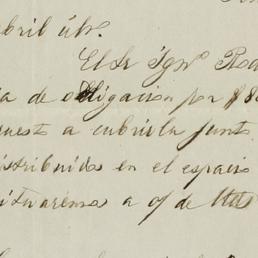 abril últ.
El Sr Ign.º Ro
a de obligacion por $8
uesto a cubrirla junt
istribuidos en el espacio
a of de